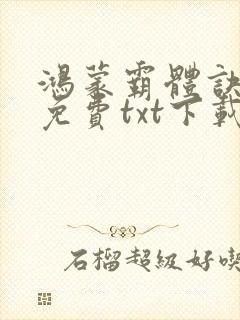 鴻蒙霸體訣
免費txt下載
石榴超級好喫